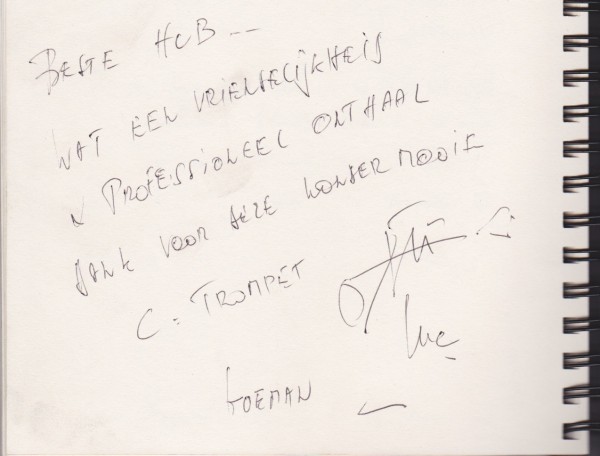 BESTE HUB ...
WAT EEN VRIENDELIJKHEID
N PROFESSIONEEL ONTHAAL
DANK VOOR DEZE WONDERMOOIE
C. TROMPET
Luc
TOEMAN